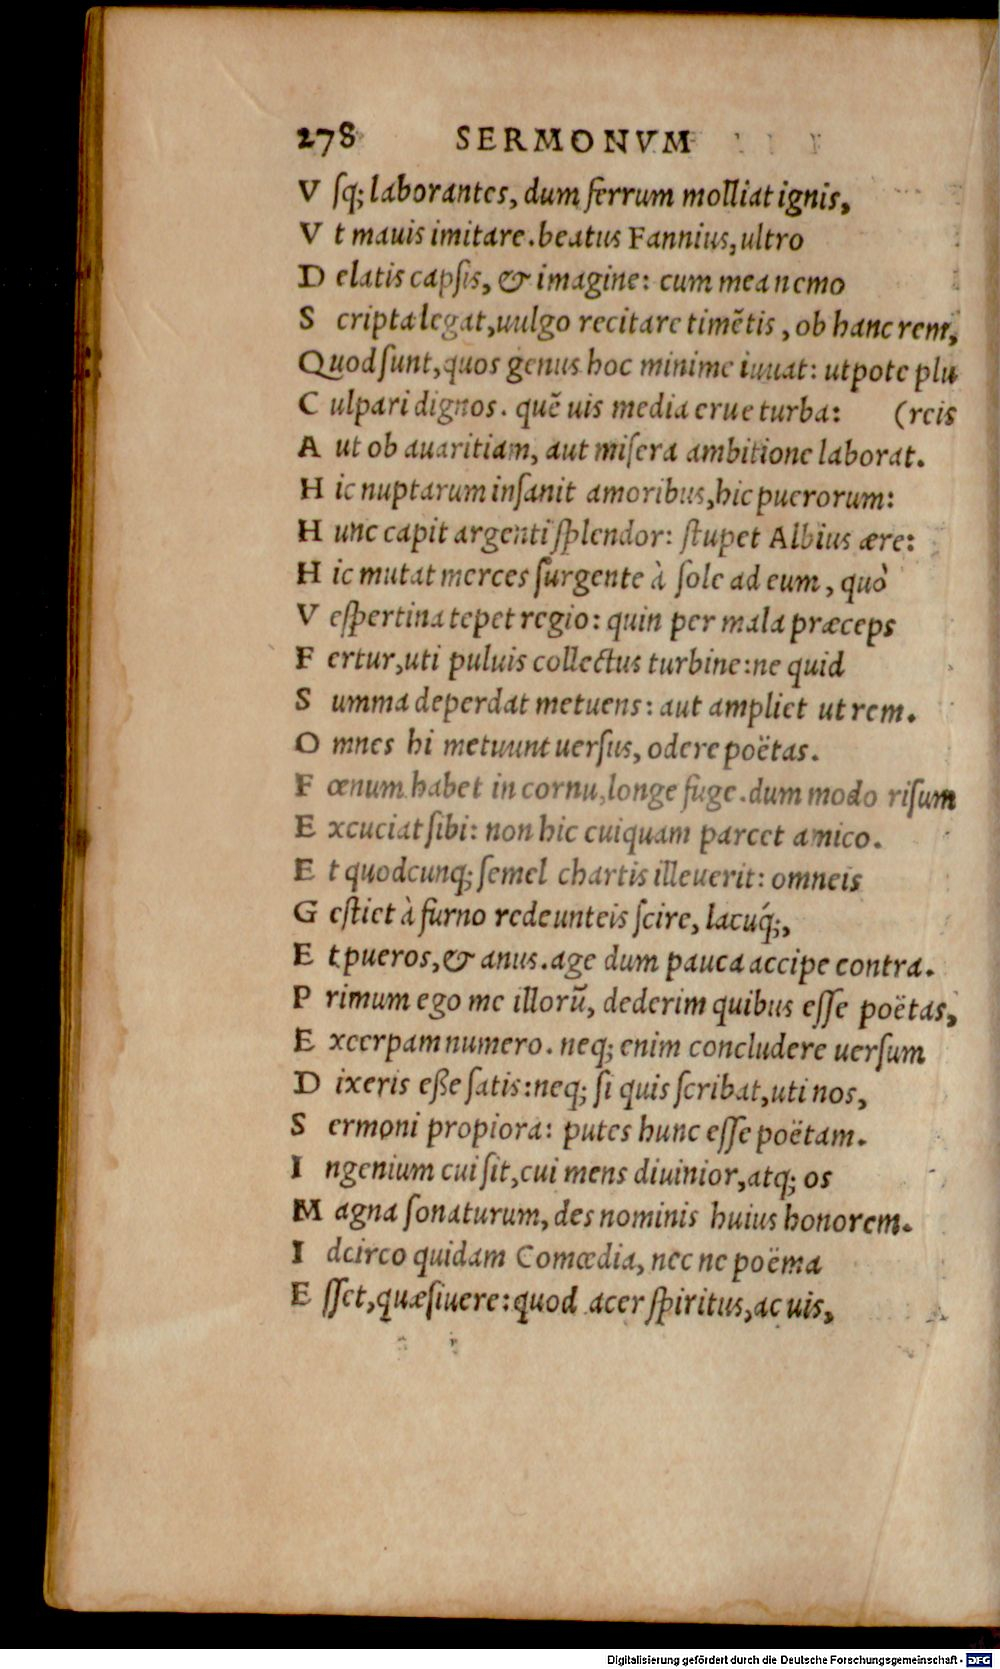 278 SERMONVM
V ſq; laborantes, dum ferrum molliat ignis,
V t mauis imitare. beatus Fannius, ultro
D elatis capſis, & imagine: cum mea nemo
S cripta legat, uulgo recitare timẽtis, ob hanc rem,
Quod ſunt, quos genus hoc minime iuuat: utpote plu
C ulpari dignos. quẽ uis media erue turba: (reis
A ut ob auaritiam, aut miſera ambitione laborat.
H ic nuptarum inſanit amoribus, hic puerorum:
H unc capit argenti ſplendor: ſtupet Albius ære:
H ic mutat merces ſurgente à ſole ad eum, quò
V eſpertina tepet regio: quin per mala præceps
F ertur, uti puluis collectus turbine: ne quid
S umma deperdat metuens: aut ampliet ut rem.
O mnes hi metuunt uerſus, odere poëtas.
F œnum habet in cornu, longe fuge. dum modo riſum
E xcuciat ſibi: non hic cuiquam parcet amico.
E t quodcunq; ſemel chartis illeuerit: omneis
G eſtiet à furno redeunteis ſcire, lacuq́;,
E t pueros, & anus. age dum pauca accipe contra.
P rimum ego me illorũ, dederim quibus eſſe poëtas,
E xcerpam numero. neq; enim concludere uerſum
D ixeris eße ſatis: neq; ſi quis ſcribat, uti nos,
S ermoni propiora: putes hunc eſſe poëtam.
I ngenium cui ſit, cui mens diuinior, atq; os
M agna ſonaturum, des nominis huius honorem.
I dcirco quidam Comœdia, nec ne poëma
E ſſet, quæſiuere: quod acer ſpiritus, ac uis,
Digitalisierung gefördert durch die Deutsche Forschungsgemeinschaft - DFG